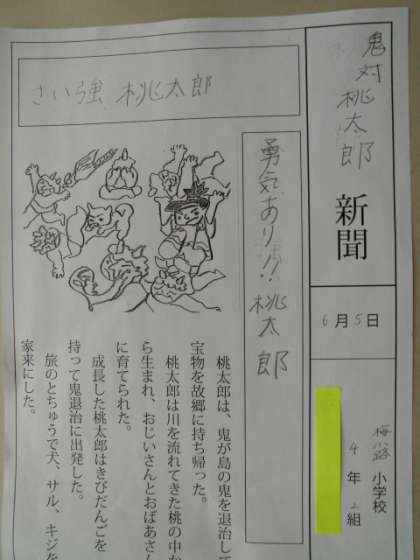 鬼対桃太郎
新聞
6月5日
梅小路小学校
4年2組
さい強 桃太郎
勇気あり!! 桃太郎
桃太郎は、鬼が島の鬼を退治して
宝物を故郷に持ち帰った。
桃太郎は川を流れてきた桃の中か
ら生まれ、おじいさんとおばあさん
に育てられた。
成長した桃太郎はきびだんごを
持って鬼退治に出発した。
旅のとちゅうで犬、サル、キジを
家来にした。